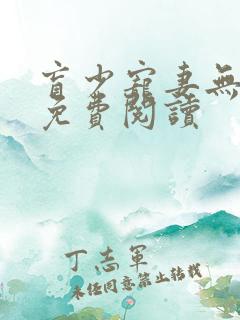 盲少寵妻無
免費閱讀
丁志軍
未经同意禁止转载